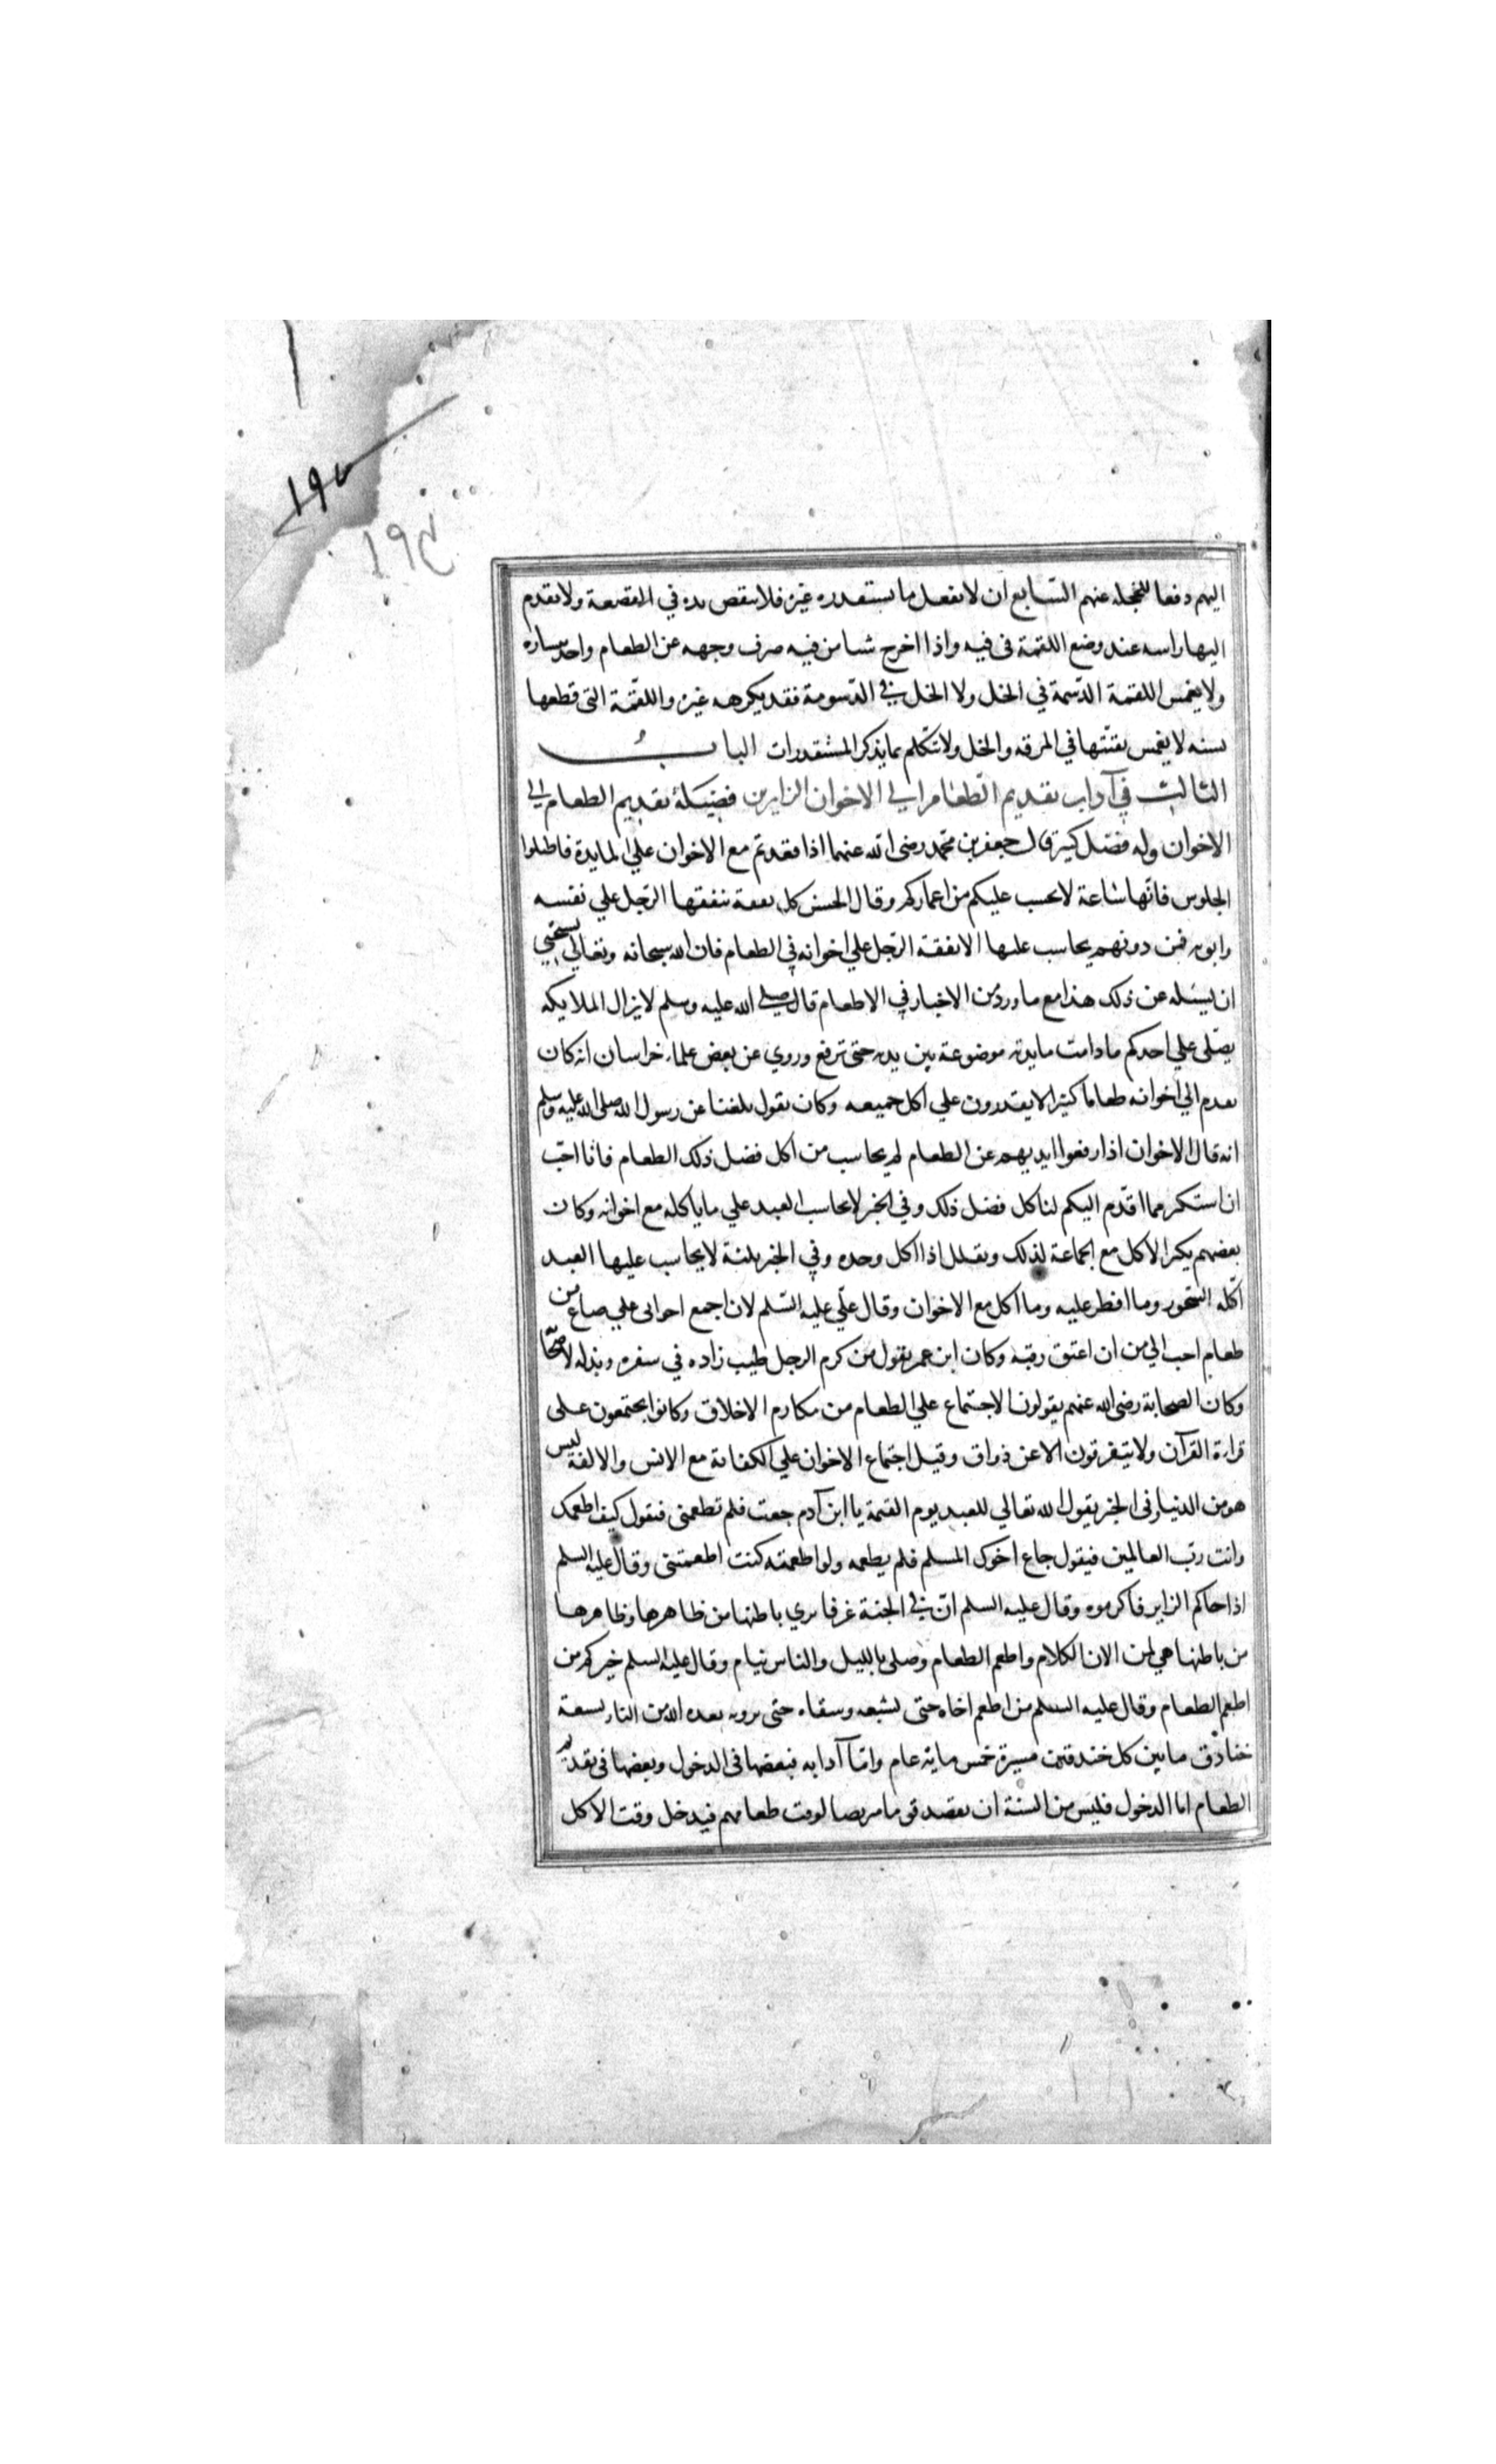 ١٩٧
١٩٤
اليهم دفعا للخجلة عنهم السّابع ان لا يفعل ما يستقدره غيره فلا ينقص يده في القصعة ولا يقدم
اليها راسه عند وضع اللقمة فى فيه واذا اخرج شيا من فيه صرف وجهه عن الطعام واخذ بيساره
ولا يغمس اللقمة الدّسمة في الخل ولا الخل في الدّسومة فقد يكرهه غيره واللقمة التى قطعها
بسنه لا يغمس بقيّتها في المرقه والخل ولا يتكلم بما يذكر المستقدرات الباب
الثالث في آداب تقديم الطعام الي الاخوان الزايرين فضيلة تقديم الطعام الي
الاخوان وله فضل كثير قال جعفر بن محمد رضى الله عنهما اذا قعدتم مع الاخوان علي المايدة فاطيلوا
الجلوس فانها ساعة لا يحسب عليكم من اعماركم وقال الحسن كل نفقة ينفقها الرّجل علي نفسه
وابويه فمن دونهم يحاسب عليها الا نفقة الرّجل علي اخوانه في الطعام فان الله سبحانه وتعالي يستحيي
ان يسئله عن ذلك هذا مع ما ورد من الاخبار في الاطعام قال صلي الله عليه وسلم لا يزال الملايكه
يصلّى علي احدكم ما دامت مايدته موضوعة بين يديه حتى ترفع وروي عن بعض علماء خراسان انه كان
يقدم الي اخوانه طعاما كثيرا لا يقدرون علي اكل جميعه وكان يقول بلغنا عن رسول الله صلى الله عليه وسلم
انه قال الاخوان اذا رفعوا ايديهم عن الطعام لم يحاسب من اكل فضل ذلك الطعام فانا احبّ
ان استكثر مما اقدّم اليكم لناكل فضل ذلك وفي الخبر لا يحاسب العبد علي ما ياكله مع اخوانه وكان
بعضهم يكثر الاكل مع الجماعة لذلك ويقلل اذا اكل وحده وفي الخبر ثلثة لا يحاسب عليها العبد
اكلة السّحور وما افطر عليه وما اكل مع الاخوان وقال علّي عليه السّلم لان اجمع اخواني علي صاع من
طعام احب الي من ان اعتق رقبه وكان ابن عمر يقول من كرم الرجل طيب زاده في سفره وبذله لاصحابه
وكان الصحابة رضى الله عنهم يقولون الاجتماع علي الطعام من مكارم الاخلاق وكانوا يجتمعون على
قراءة القرآن ولا يتفرقون الا عن ذواق وقيل اجتماع الاخوان علي الكفاية مع الانس والالفة ليس
هو من الدنيا وفى الخبر يقول الله تعالي للعبد يوم القيمة يا ابن آدم جعت فلم تطعمنى فيقول كيف اطعمك
وانت ربّ العالمين فيقول جاع اخوك المسلم فلم يطعمه ولو اطعمته كنت اطعمتنى وقال عليه السلم
اذا جاكم الزاير فاكرموه وقال عليه السلم انّ في الجنة غرفا يري باطنها من ظاهرها وظاهرها
من باطنها هي لمن الان الكلام واطعم الطعام وصلى بالليل والناس نيام وقال عليه السلم خيركم من
اطعم الطعام وقال عليه السلم من اطعم اخاه حتى يشبعه وسقاه حتى يرويه بعده الله من النار بسعة
خنادق ما بين كل خندقين مسيرة خمس ماية عام وامّا آدابه فبعضها فى الدخول وبعضها فى تقديم
الطعام اما الدخول فليس من السنة ان يقصد قوما متربصا لوقت طعامهم فيدخل وقت الاكل